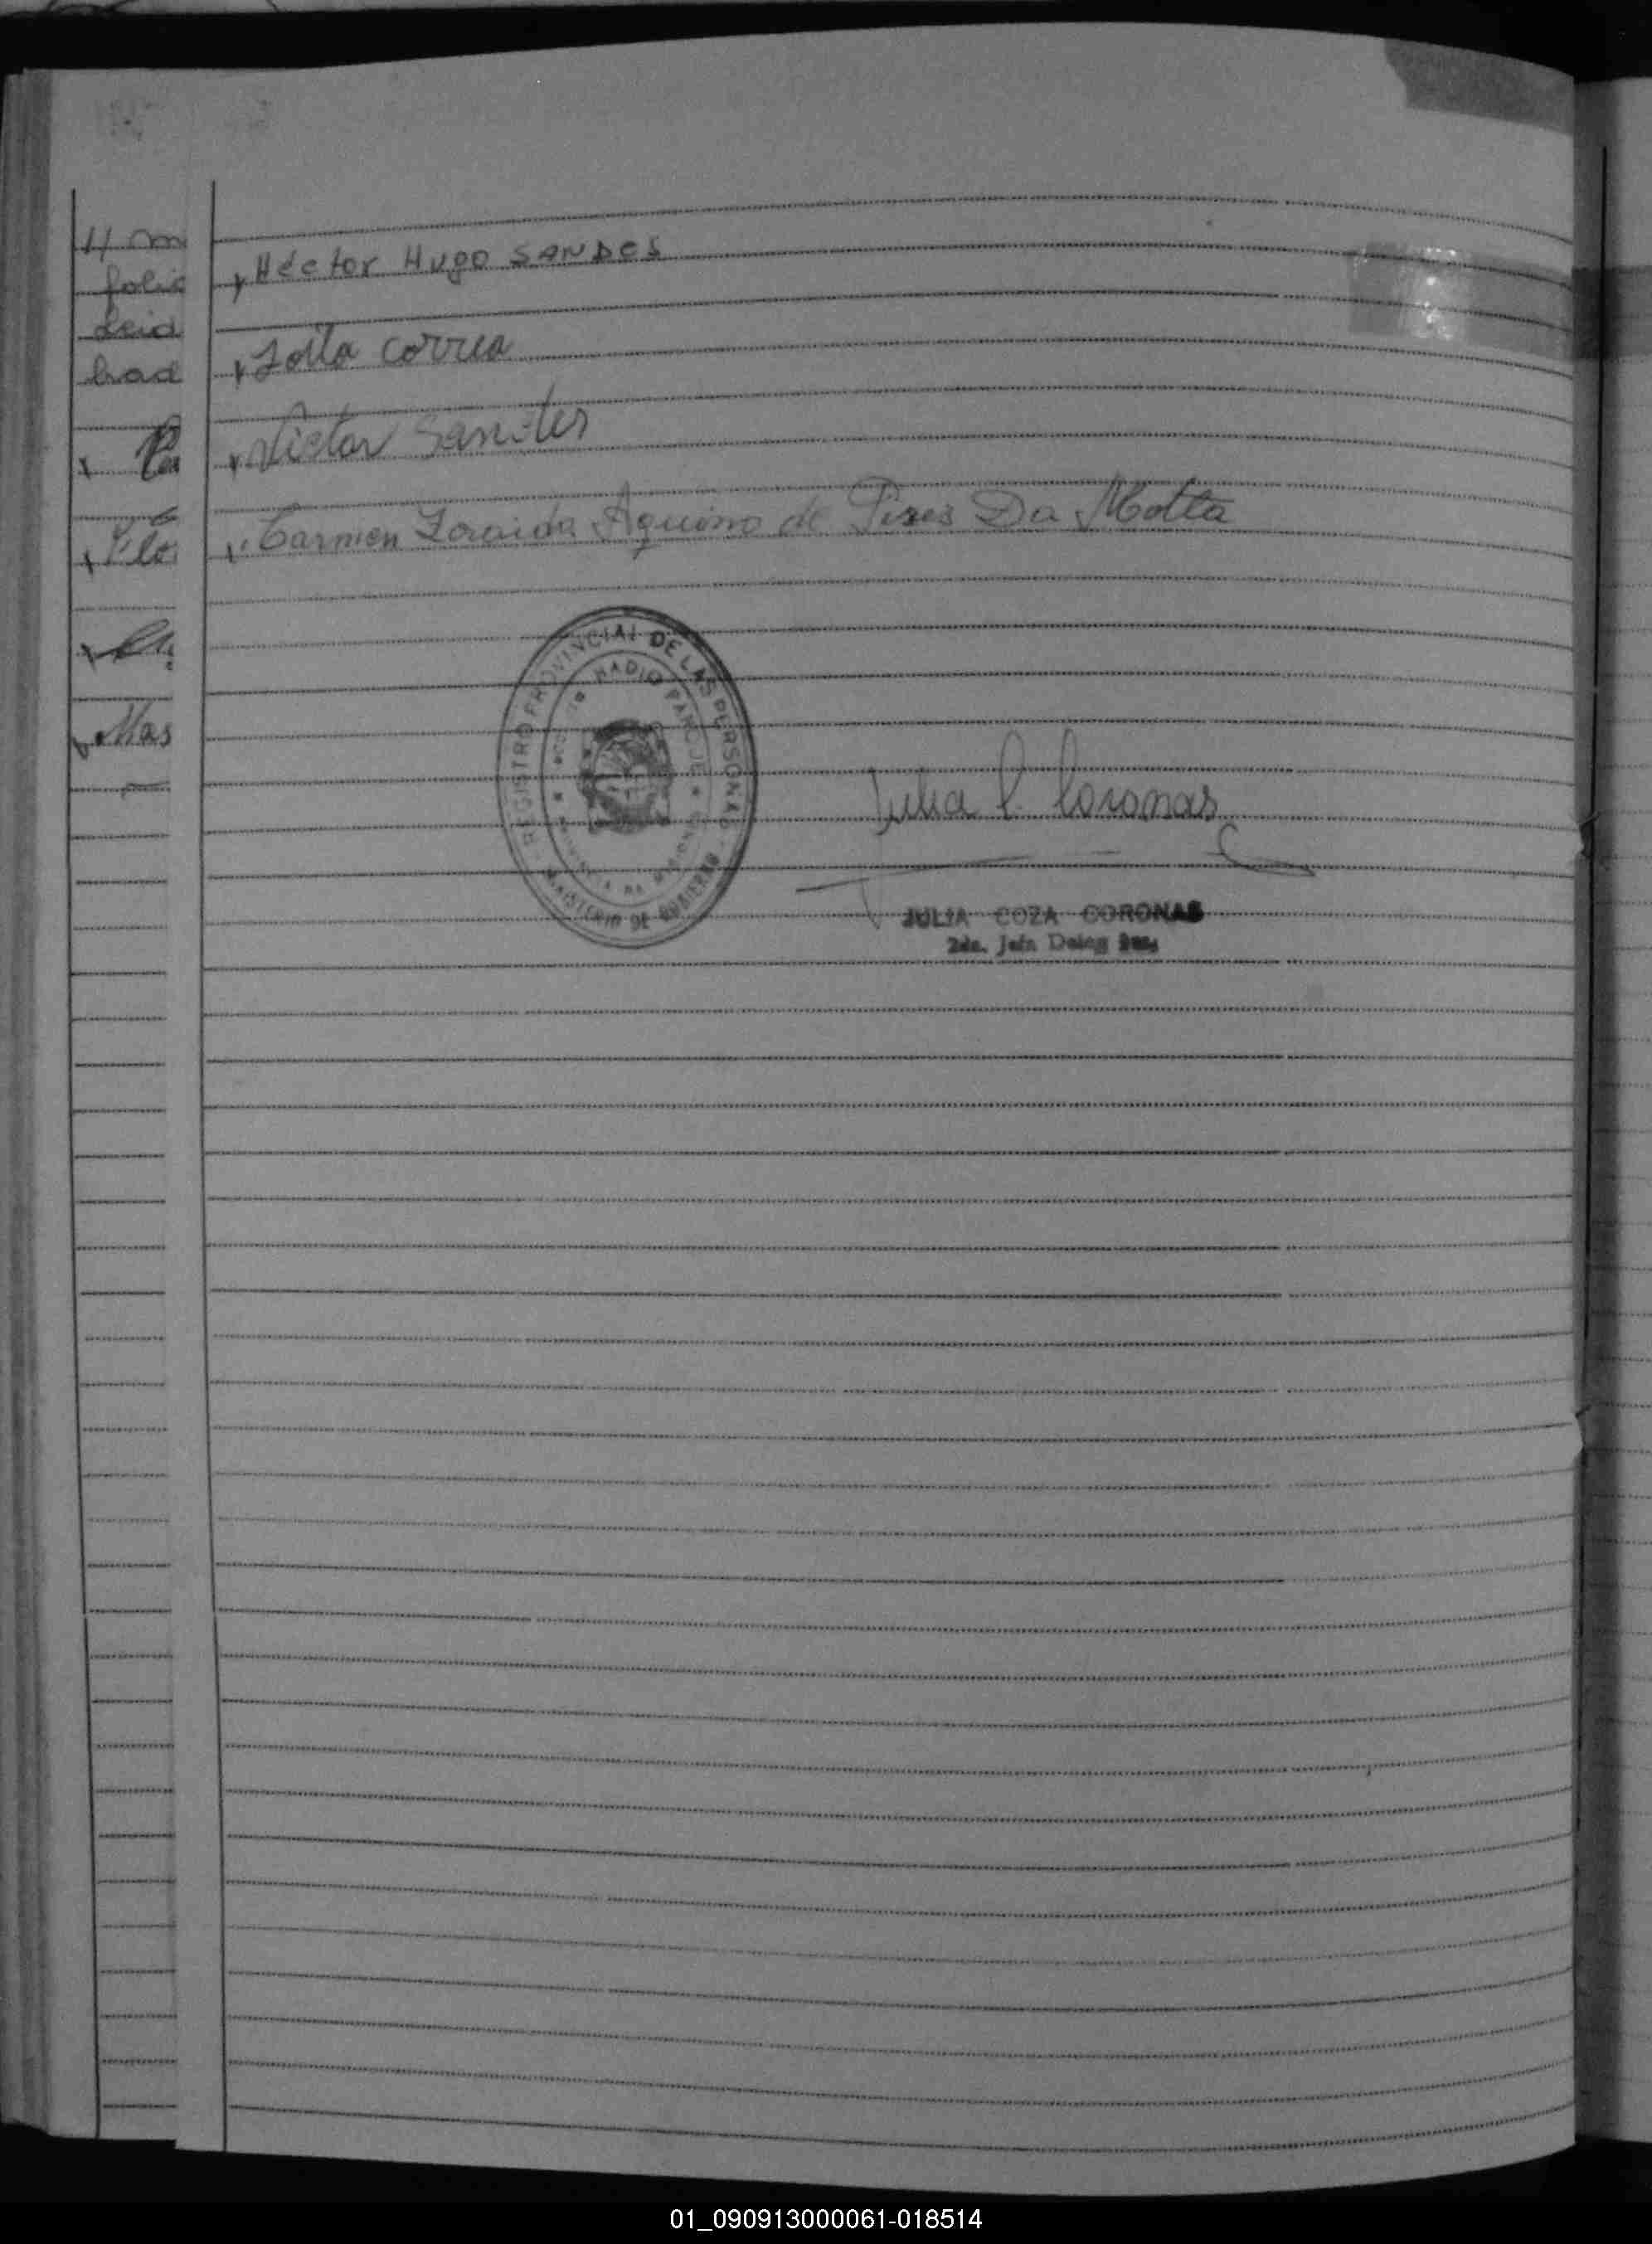 H m
folio
Leid
brad
Mas
Héctor Hugo SANDES
Zoila Correa
Victor Sandes
Carmen Zoraida Aquino de Pires Da Motta
REGISTRO PROVINCIAL DE LAS PERSONAS
MINISTERIO DE GOBIERNO
RADIO PARQUE
Julia C. Coronas
JULIA COZA CORONAS
2da. Jefa
01_090913000061-018514